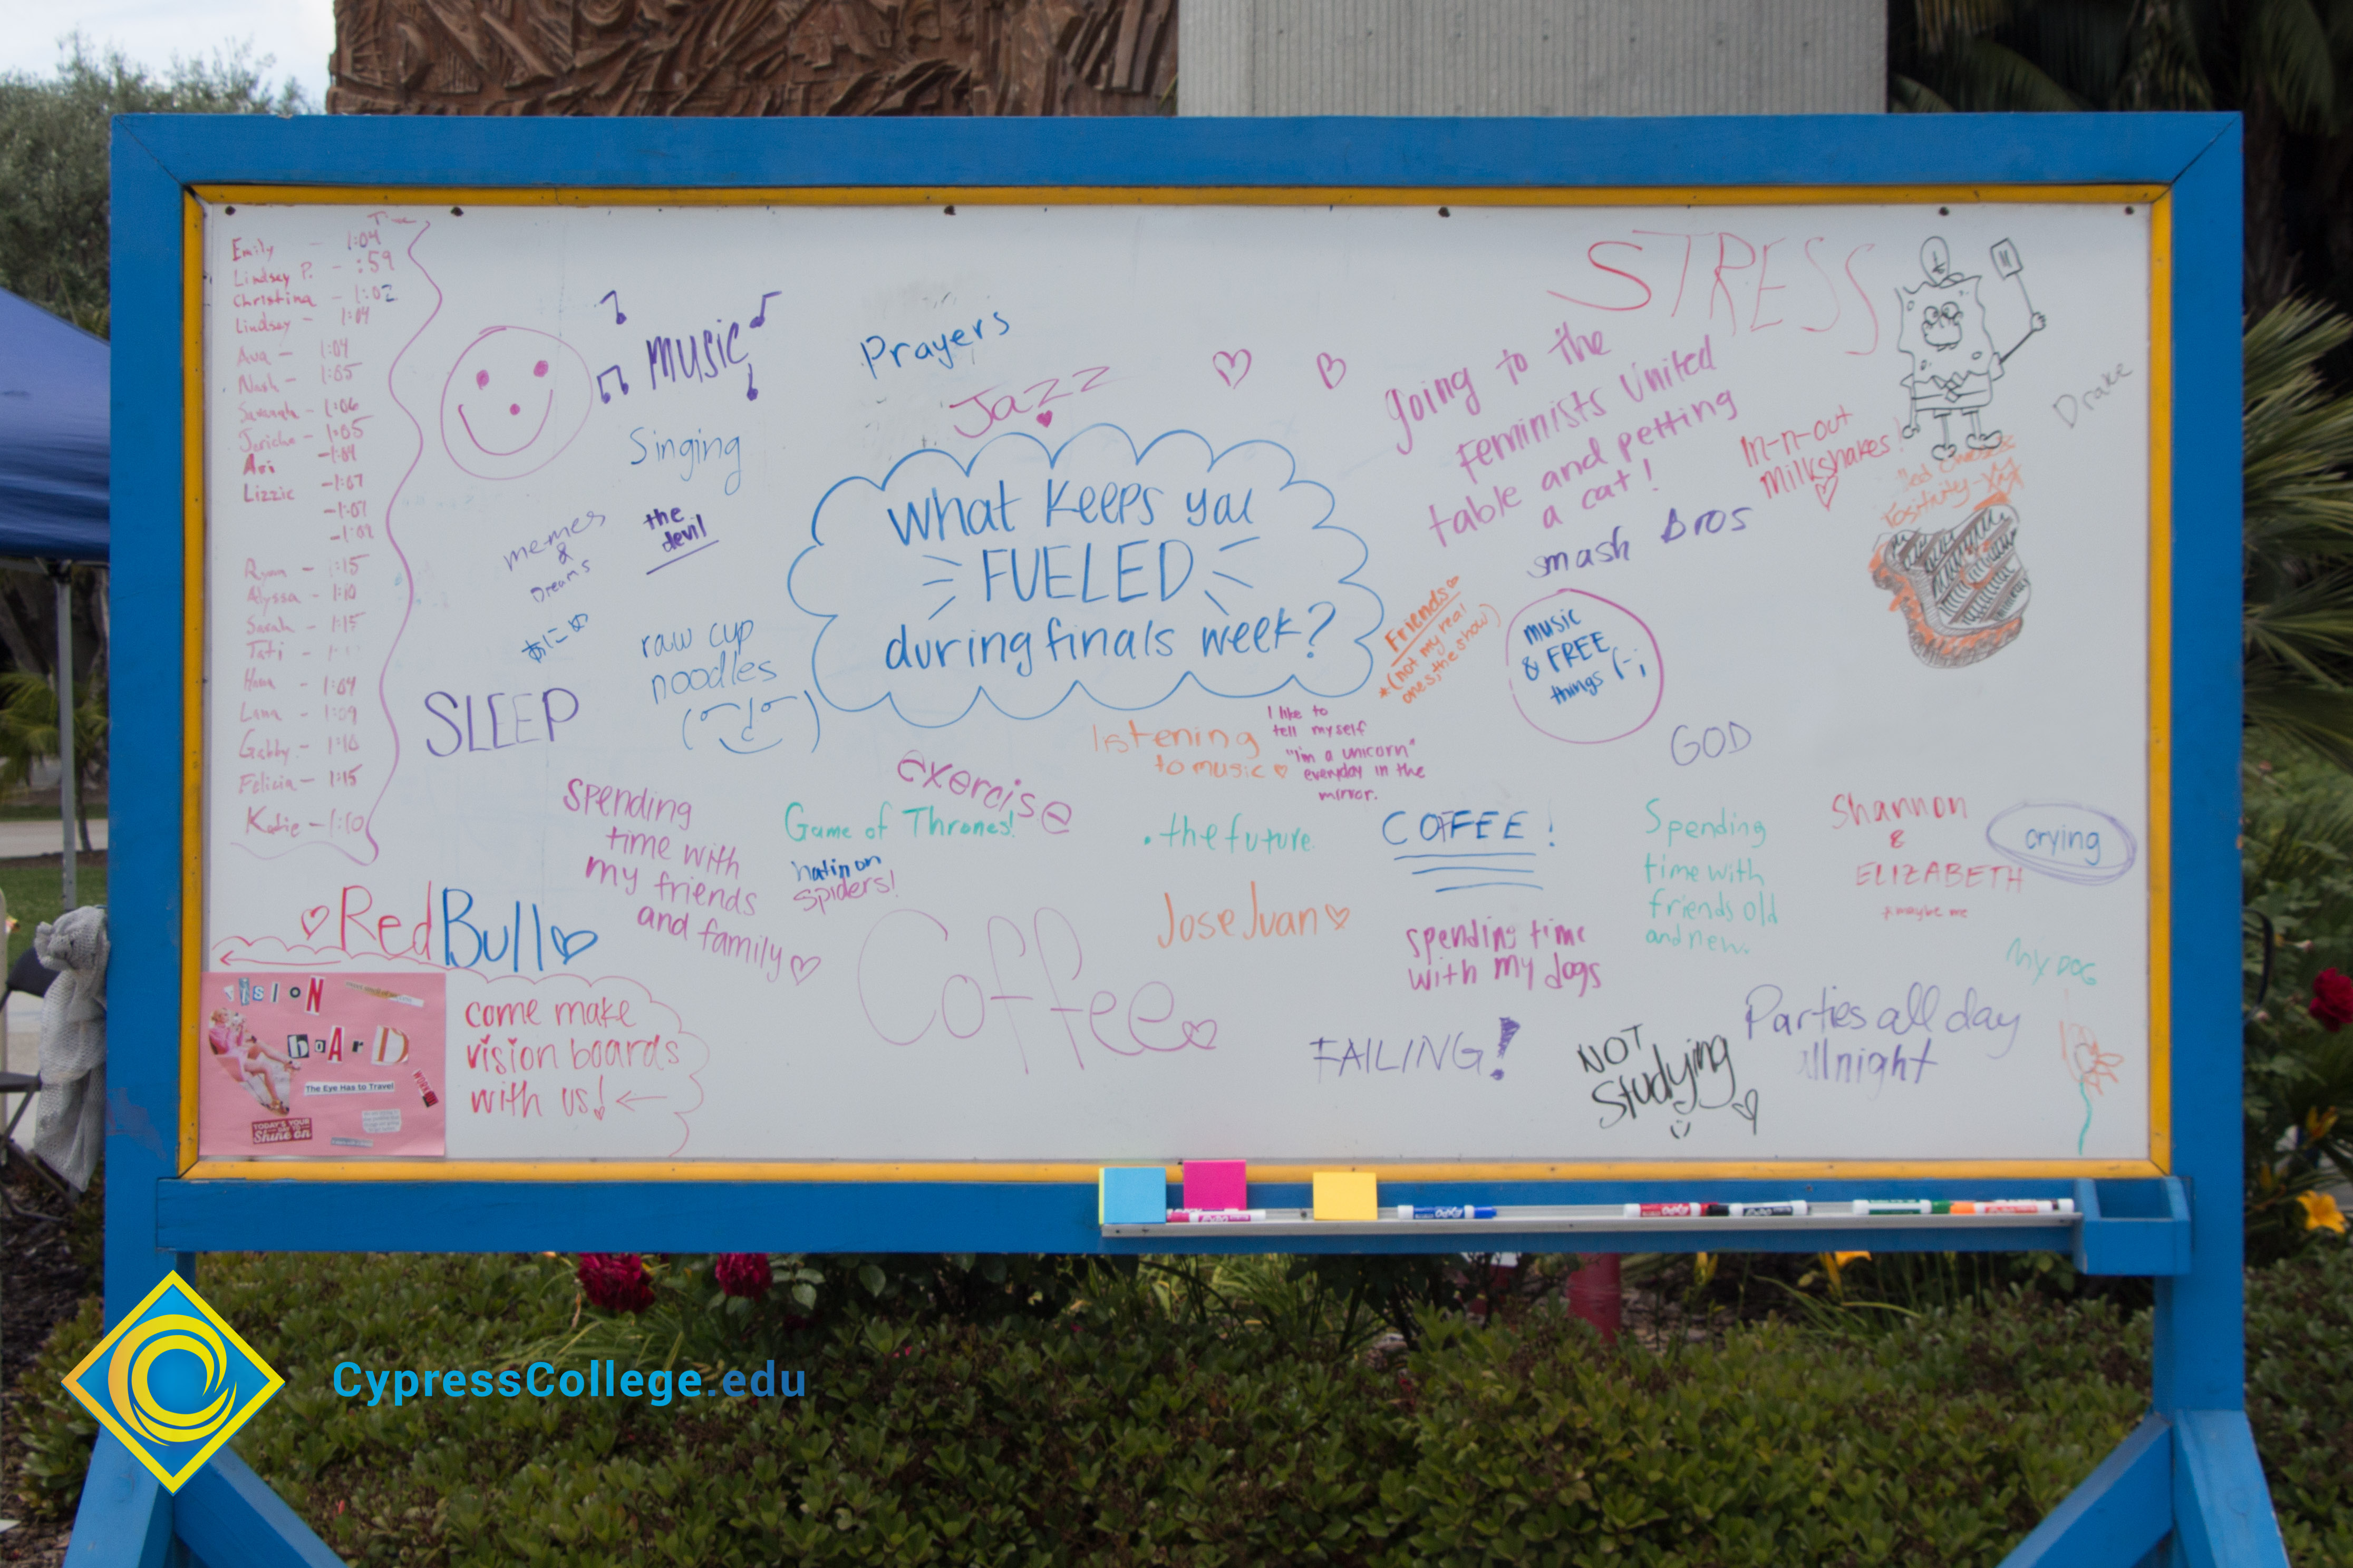 Emily - 1:04
Lindsey P. - :59
Christina - 1:02
Lindsay - 1:04
Ava - 1:04
Nash - 1:05
Savannah - 1:06
Jericho - 1:05
Avi - 1:04
Lizzie - 1:07
- 1:07
Ryan - 1:15
Alyssa - 1:10
Sarah - 1:15
Tati -
Hana - 1:04
Lana - 1:09
Gabby - 1:10
Felicia - 1:15
Katie - 1:10
music
Singing
memes
&
Dreams
the
devil
あにめ
raw cup
noodles
SLEEP
Prayers
Jazz
What keeps you
FUELED
during finals week?
STRESS
M
going to the
Feminists United
table and petting
a cat!
Drake
In-n-out
Milkshakes!
Positivity
smash Bros
Friends
*(not my real
ones, the show)
music
& FREE
things (-;
GOD
listening
to music
I like to
tell myself
"i'm a unicorn"
everyday in the
mirror.
exercise
Spending
time with
my friends
and family
Game of Thrones!
hatin on
spiders!
.the future
COFFEE!
Spending
time with
friends old
and new.
Shannon
&
ELIZABETH
*maybe me
crying
Red Bull
Coffee
Jose Juan
spending time
with my dogs
My DOG
FAILING!
NOT
Studying
Parties all day
all night
VISION
boARD
The Eye Has to Travel
WORK
TODAY'S YOUR
DAY TO
Shine on
come make
vision boards
with us!
CypressCollege.edu